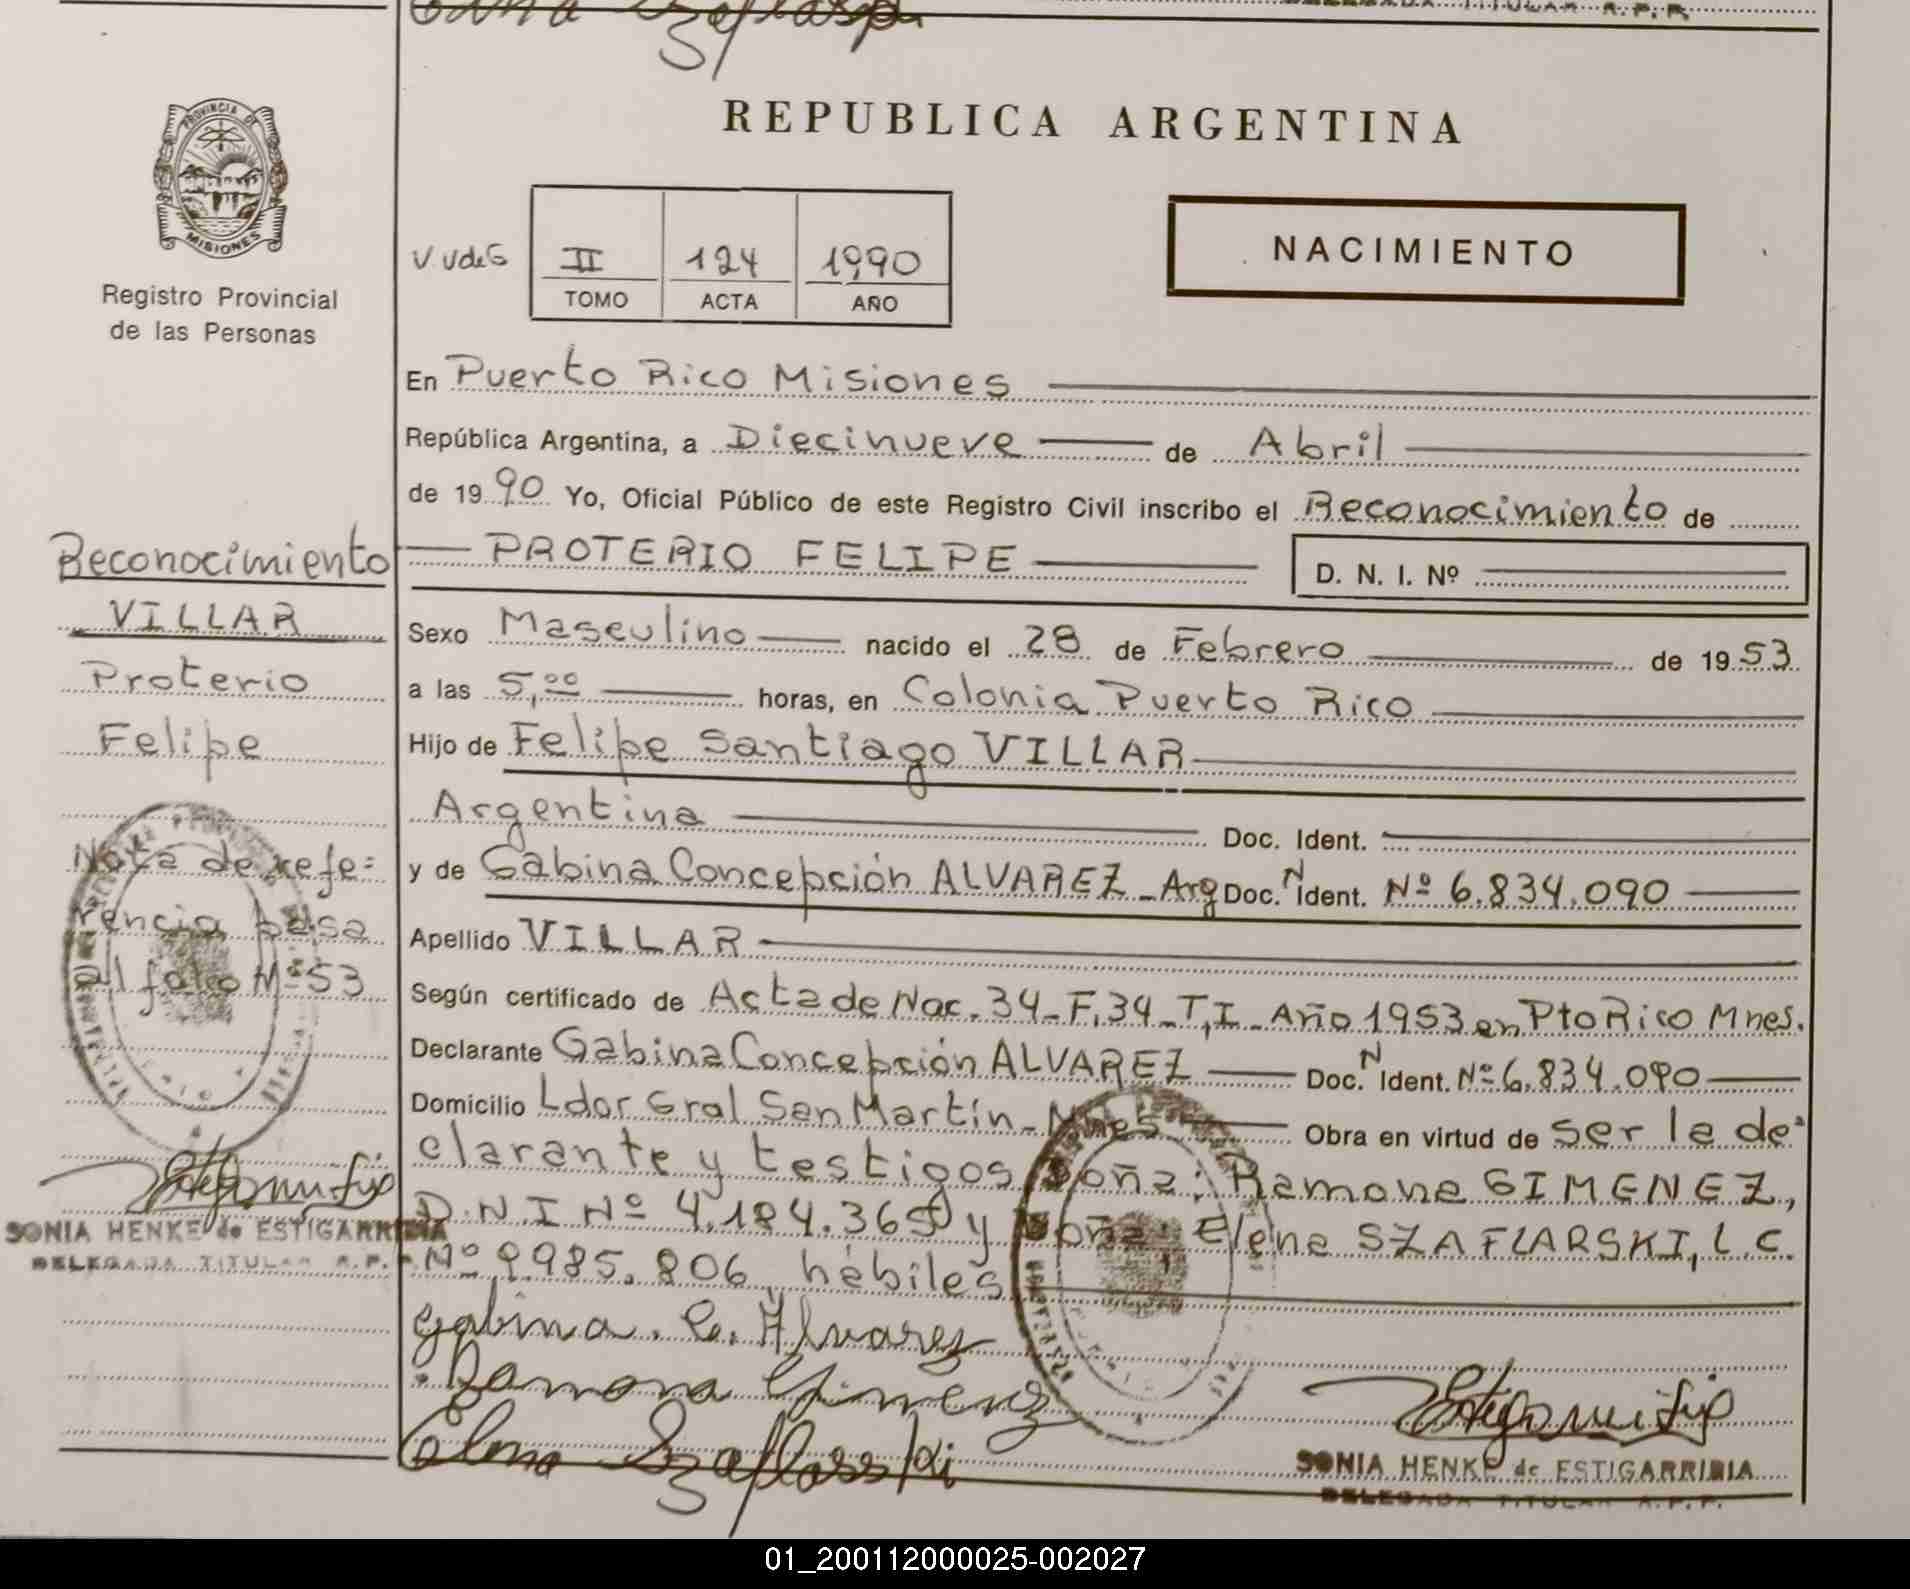 REPUBLICA ARGENTINA
PROVINCIA DE
MISIONES
Registro Provincial
de las Personas
NACIMIENTO
V.VdeG
II 124 1990
TOMO ACTA AÑO
En Puerto Rico Misiones
República Argentina, a Diecinueve de Abril
de 1990 Yo, Oficial Público de este Registro Civil inscribo el Reconocimiento de
PROTERIO FELIPE D. N. I. Nº
Sexo Masculino nacido el 28 de Febrero de 1953
a las 5,00 horas, en Colonia Puerto Rico
Hijo de Felipe Santiago VILLAR
Argentina Doc. Ident.
y de Gabina Concepción ALVAREZ - Arg Doc. N Ident. Nº 6.834.090
Apellido VILLAR
Según certificado de Acta de Nac. 34 - F. 34 - T, I - Año 1953 en Pto Rico Mnes.
Declarante Gabina Concepción ALVAREZ Doc. N Ident. Nº 6.834.090
Domicilio Ldor Gral San Martín - Mnes Obra en virtud de ser la de=
clarante y testigos Doña: Ramona GIMENEZ,
D.N.I Nº 4.184.365 y Doña: Elena SZAFLARSKI, L.C.
Nº 9985.806, hábiles
Gabina. C. Alvarez
Ramona Gimenez
Elena Szaflarski
SONIA HENKE de ESTIGARRIBIA
DELEGADA TITULAR R.P.P.
Reconocimiento
VILLAR
Proterio
Felipe
Nota de refe=
rencia pasa
al folio Nº 53
SONIA HENKE de ESTIGARRIBIA
DELEGADA TITULAR R.P.P.
01_200112000025-002027